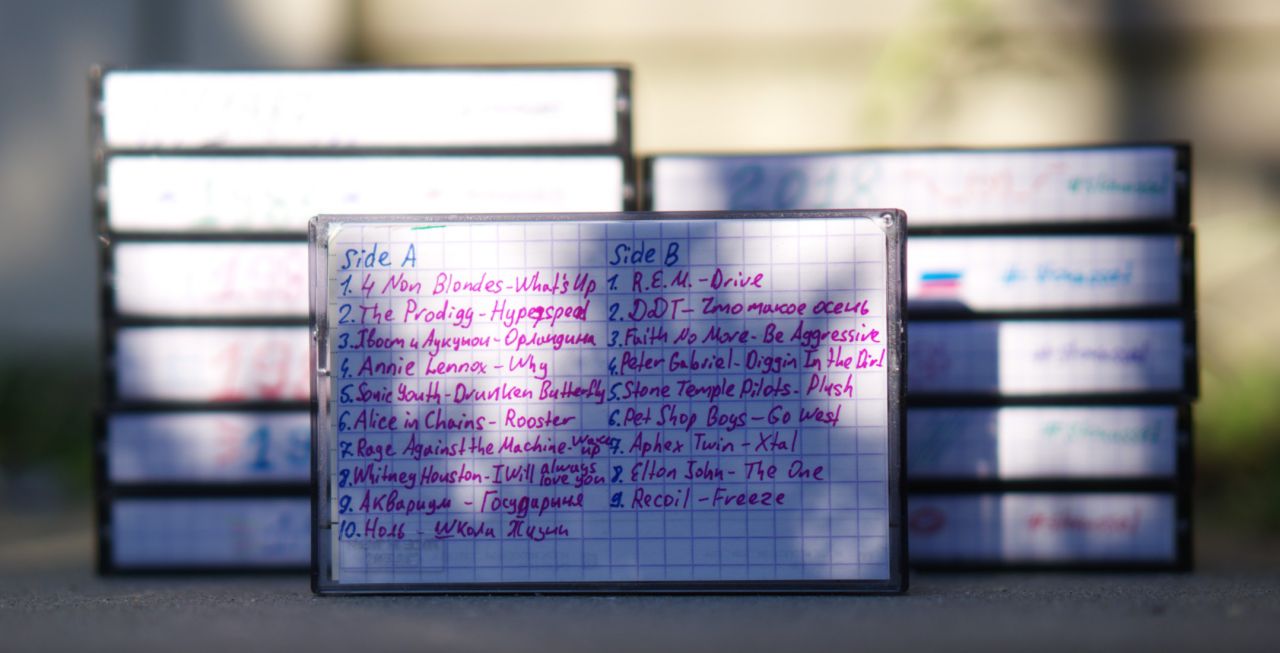 Side A
1. 4 Non Blondes - What's Up
2. The Prodigy - Hyperspeed
3. Хвост и Аукцион - Орландина
4. Annie Lennox - Why
5. Sonic Youth - Drunken Butterfly
6. Alice in Chains - Rooster
7. Rage Against the Machine - Wake up
8. Whitney Houston - I Will always love you
9. Аквариум - Государыня
10. Ноль - Школа Жизни
Side B
1. R.E.M. - Drive
2. DDT - Что такое осень
3. Faith No More - Be Aggressive
4. Peter Gabriel - Diggin In the Dirt
5. Stone Temple Pilots - Plush
6. Pet Shop Boys - Go West
7. Aphex Twin - Xtal
8. Elton John - The One
9. Recoil - Freeze
2018